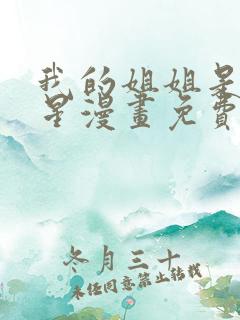 我的姐姐是
星漫畫免費
冬月三十
未经同意禁止转载